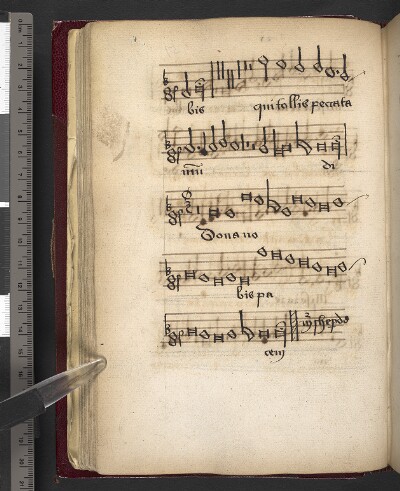 bis qui tollis peccata
mu di
Dona no
bis pa
cem